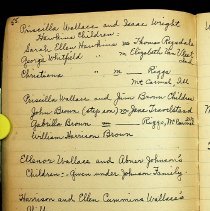 Priscilla Wallace and Isaac Wright
Hawkins Children:
Sarah Ellen Hawkins m Thomas Ragsdale
George Whitfield " m Elizabeth
Christiana " m — Riggs
Mt. Carmel, Ill.
Priscilla Wallace and Jim Brown Children
John Brown (step son) m Jane
Gabrilla Brown m — Riggs, Mt. Carmel
William Harrison Brown
Ellenor Wallace and Abner Johnson's
Children: - Given under Johnson Family.
Harrison and Ellen Cummins Wallace's